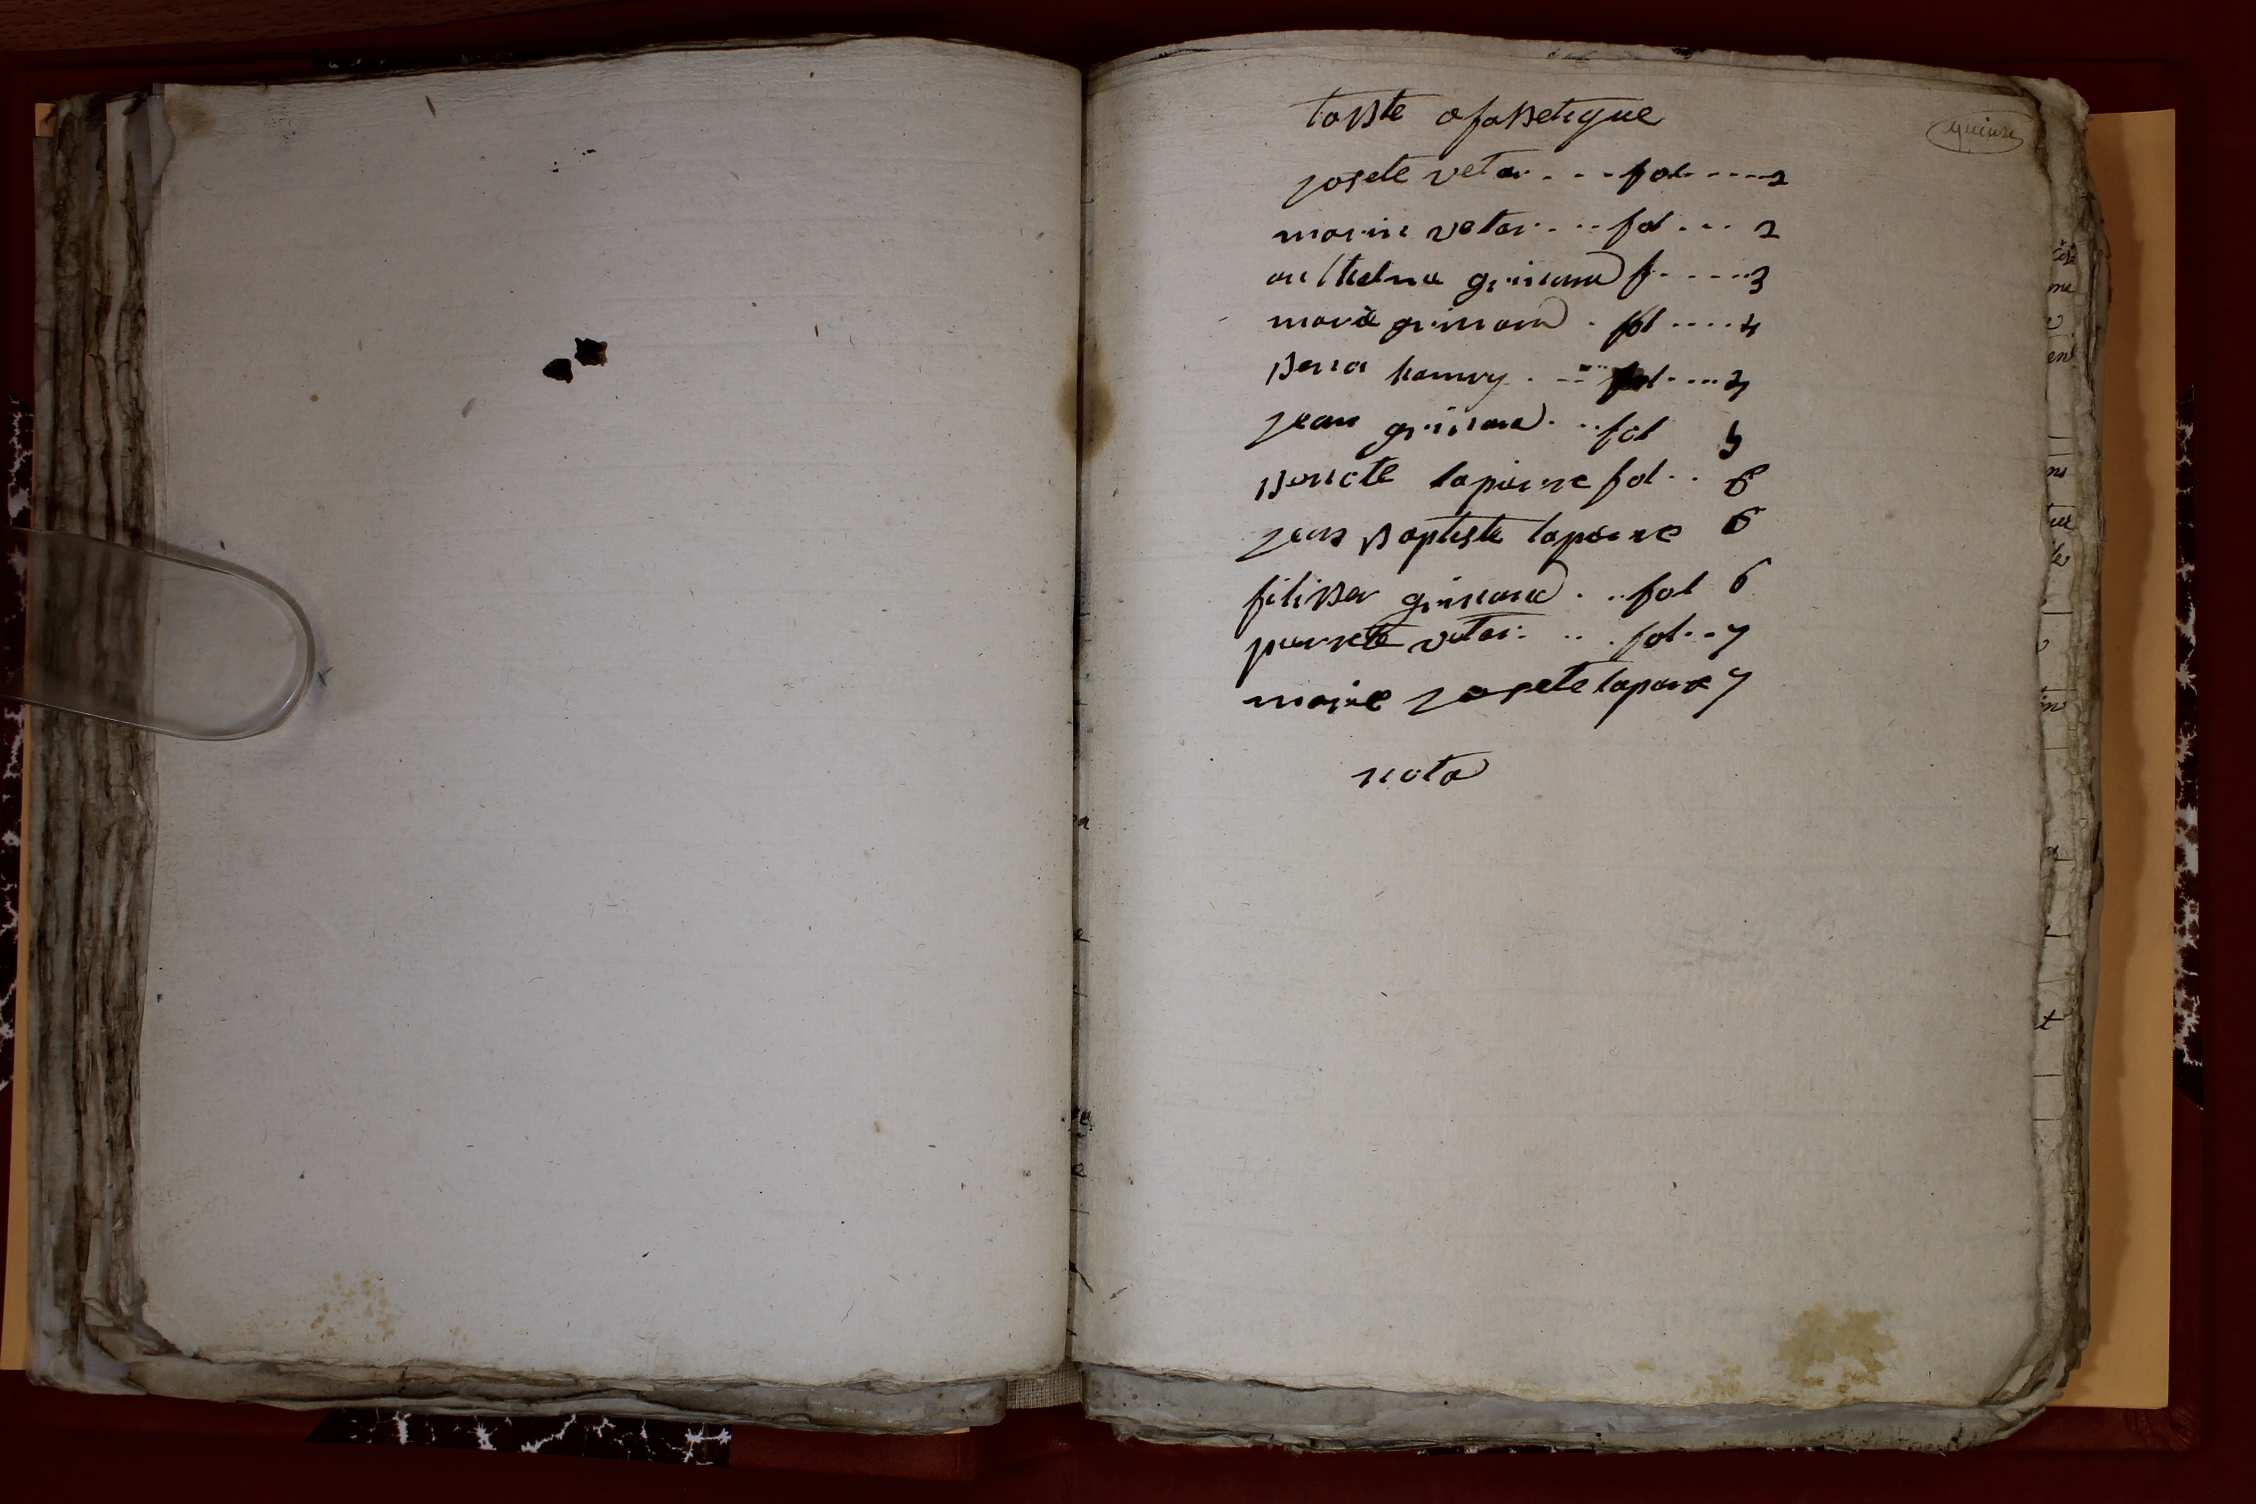 table afabetique
josete vetar . . . fol . . . . . 2
marie vetar . . . fol . . . 2
anthelme grinand f . . . . . 3
marie grinand . fol . . . . 4
bena hanry . . . fol . . . 4
jean grinand . . . fol 5
benoite lapierre fol . . 6
jean baptiste lapierre 6
feliber grinand . . . fol 6
pierrete vetar . . . fol . . 7
marie josete lapiere 7
nota